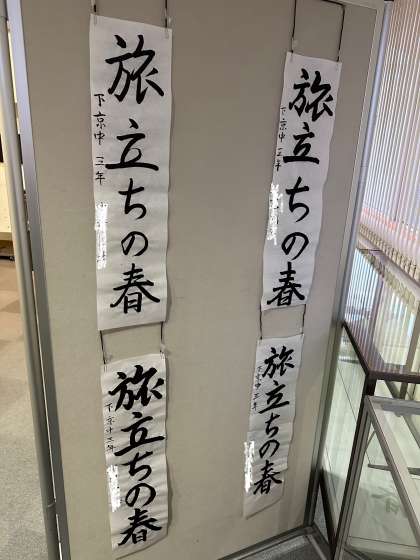 旅立ちの春
下京中 三年
旅立ちの春
下京中 三年
旅立ちの春
下京中三年
旅立ちの春
下京中三年